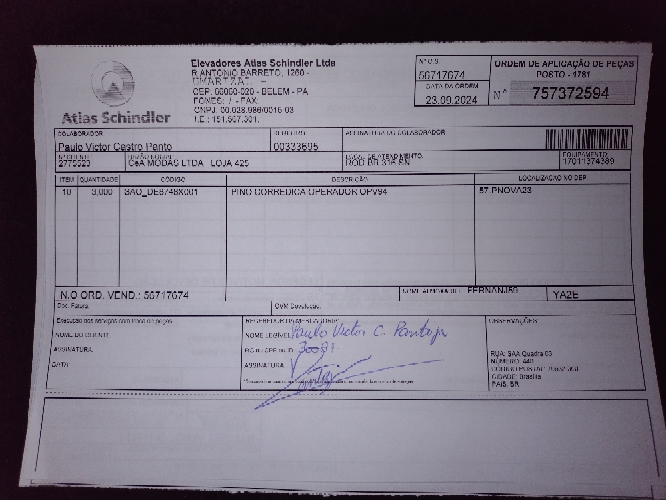 Atlas Schindler
Elevadores Atlas Schindler Ltda
R ANTONIO BARRETO, 1260 -
UMARIZAL -
CEP: 66060-020 - BELEM - PA
FONES: / - FAX:
CNPJ: 00.028.986/0016-03
I.E.: 151.567.301.
Nº O.S.
56717674
DATA DA ORDEM
23.09.2024
ORDEM DE APLICAÇÃO DE PEÇAS
POSTO - 1761
Nº 757372594
COLABORADOR
Paulo Victor Castro Panto
00333695
ASSINATURA DO COLABORADOR
2775520
C&A MODAS LTDA LOJA 425
LOCAL DE ATENDIMENTO
ROD BR 316 SN
EQUIPAMENTO
17011374389
ITEM QUANTIDADE CÓDIGO DESCRIÇÃO LOCALIZAÇÃO NO DEP.
10 3,000 SAO_DE8748X001 PINO CORREDICA OPERADOR OPV94 57.PNOVA23
N.O ORD. VEND.: 56717674
FERNANJ59
YA2E
Doc. Fatura:
GVM Devolução:
Execução dos serviços com troca de peças
NOME DO CLIENTE
ASSINATURA
DATA
RECEBEDOR DA MERCADORIA
NOME LEGÍVEL Paulo Victor C. Pantoja
RG ou CPF ou ID
ASSINATURA
OBSERVAÇÕES
RUA: SAA Quadra 03
NÚMERO: 440
CIDADE: Brasília
PAÍS: BR